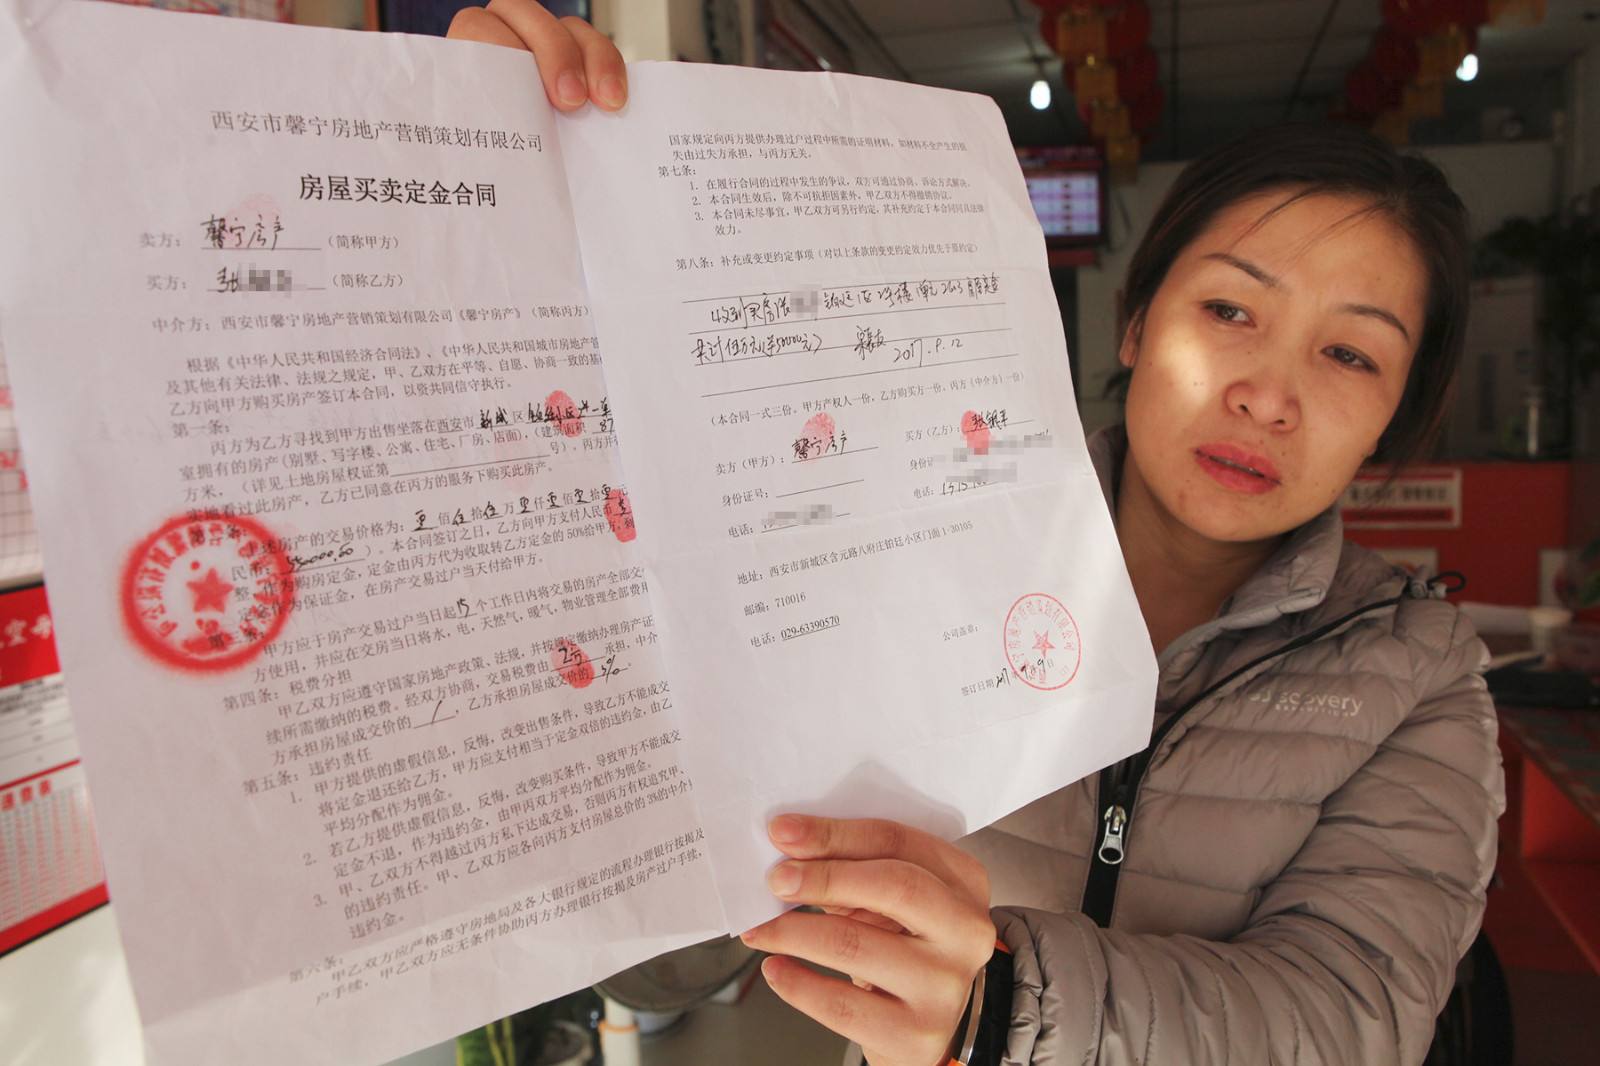 西安市馨宁房地产营销策划有限公司
房屋买卖定金合同
卖方：馨宁房产（简称甲方）
买方：张（简称乙方）
中介方：西安市馨宁房地产营销策划有限公司《馨宁房产》（简称丙方）
根据《中华人民共和国经济合同法》、《中华人民共和国城市房地产管
及其他有关法律、法规之规定，甲、乙双方在平等、自愿、协商一致的基
乙方向甲方购买房产签订本合同，以资共同信守执行。
第一条：
丙方为乙方寻找到甲方出售坐落在西安市新城区
室拥有的房产（别墅、写字楼、公寓、住宅、厂房、店面），（建筑面积 87
方米，（详见土地房屋权证第 号），丙方并
实地看过此房产，乙方已同意在丙方的服务下购买此房产。
第二条：上述房产的交易价格为：零佰伍拾伍万零仟零佰零拾零元
民币：550000.00）。本合同签订之日，乙方向甲方支付人民币
整，作为购房定金，定金由丙方代为收取转乙方定金的50%给甲方，到
定金作为保证金，在房产交易过户当天付给甲方。
第三条：甲方应于房产交易过户当日起15个工作日内将交易的房产全部交
方使用，并应在交房当日将水，电，天然气，暖气，物业管理全部费用
第四条：税费分担
甲乙双方应遵守国家房地产政策、法规，并按规定缴纳办理房产证
续所需缴纳的税费。经双方协商，交易税费由乙方承担，中介
方承担房屋成交价的 / ，乙方承担房屋成交价的
第五条：违约责任
1. 甲方提供的虚假信息，反悔，改变出售条件，导致乙方不能成交
将定金退还给乙方，甲方应支付相当于定金双倍的违约金，由乙
平均分配作为佣金。
2. 若乙方提供虚假信息，反悔，改变购买条件，导致甲方不能成交
定金不退，作为违约金，由甲丙双方平均分配作为佣金。
3. 甲、乙双方不得越过丙方私下达成交易，否则丙方有权追究甲、
的违约责任。甲、乙双方应各向丙方支付房屋总价的3%的中介
违约金。
第六条：
甲乙双方应严格遵守房地局及各大银行规定的流程办理银行按揭及
户手续，甲乙双方应无条件协助丙方办理银行按揭及房产过户手续，
国家规定向丙方提供办理过户过程中所需的证明材料，如材料不全产生的损
失由过失方承担，与丙方无关。
第七条：
1. 在履行合同的过程中发生的争议，双方可通过协商、诉讼方式解决。
2. 本合同生效后，除不可抗拒因素外，甲乙双方不得撤销协议。
3. 本合同未尽事宜，甲乙双方可另行约定，其补充约定于本合同同具法律
效力。
第八条：补充或变更约定事项（对以上条款的变更约定效力优先于原约定）
收到买房张
共计伍万元（¥50000元） 2017.9.12
（本合同一式三份。甲方产权人一份，乙方购买方一份，丙方（中介方）一份）
卖方（甲方）：馨宁房产
买方（乙方）：张
身份证号：
身份证
电话：
电话：
地址：西安市新城区含元路八府庄铂廷小区门面1-30105
邮编：710016
电话：029-63390570
公司盖章：
签订日期 2017年9月9日
discovery